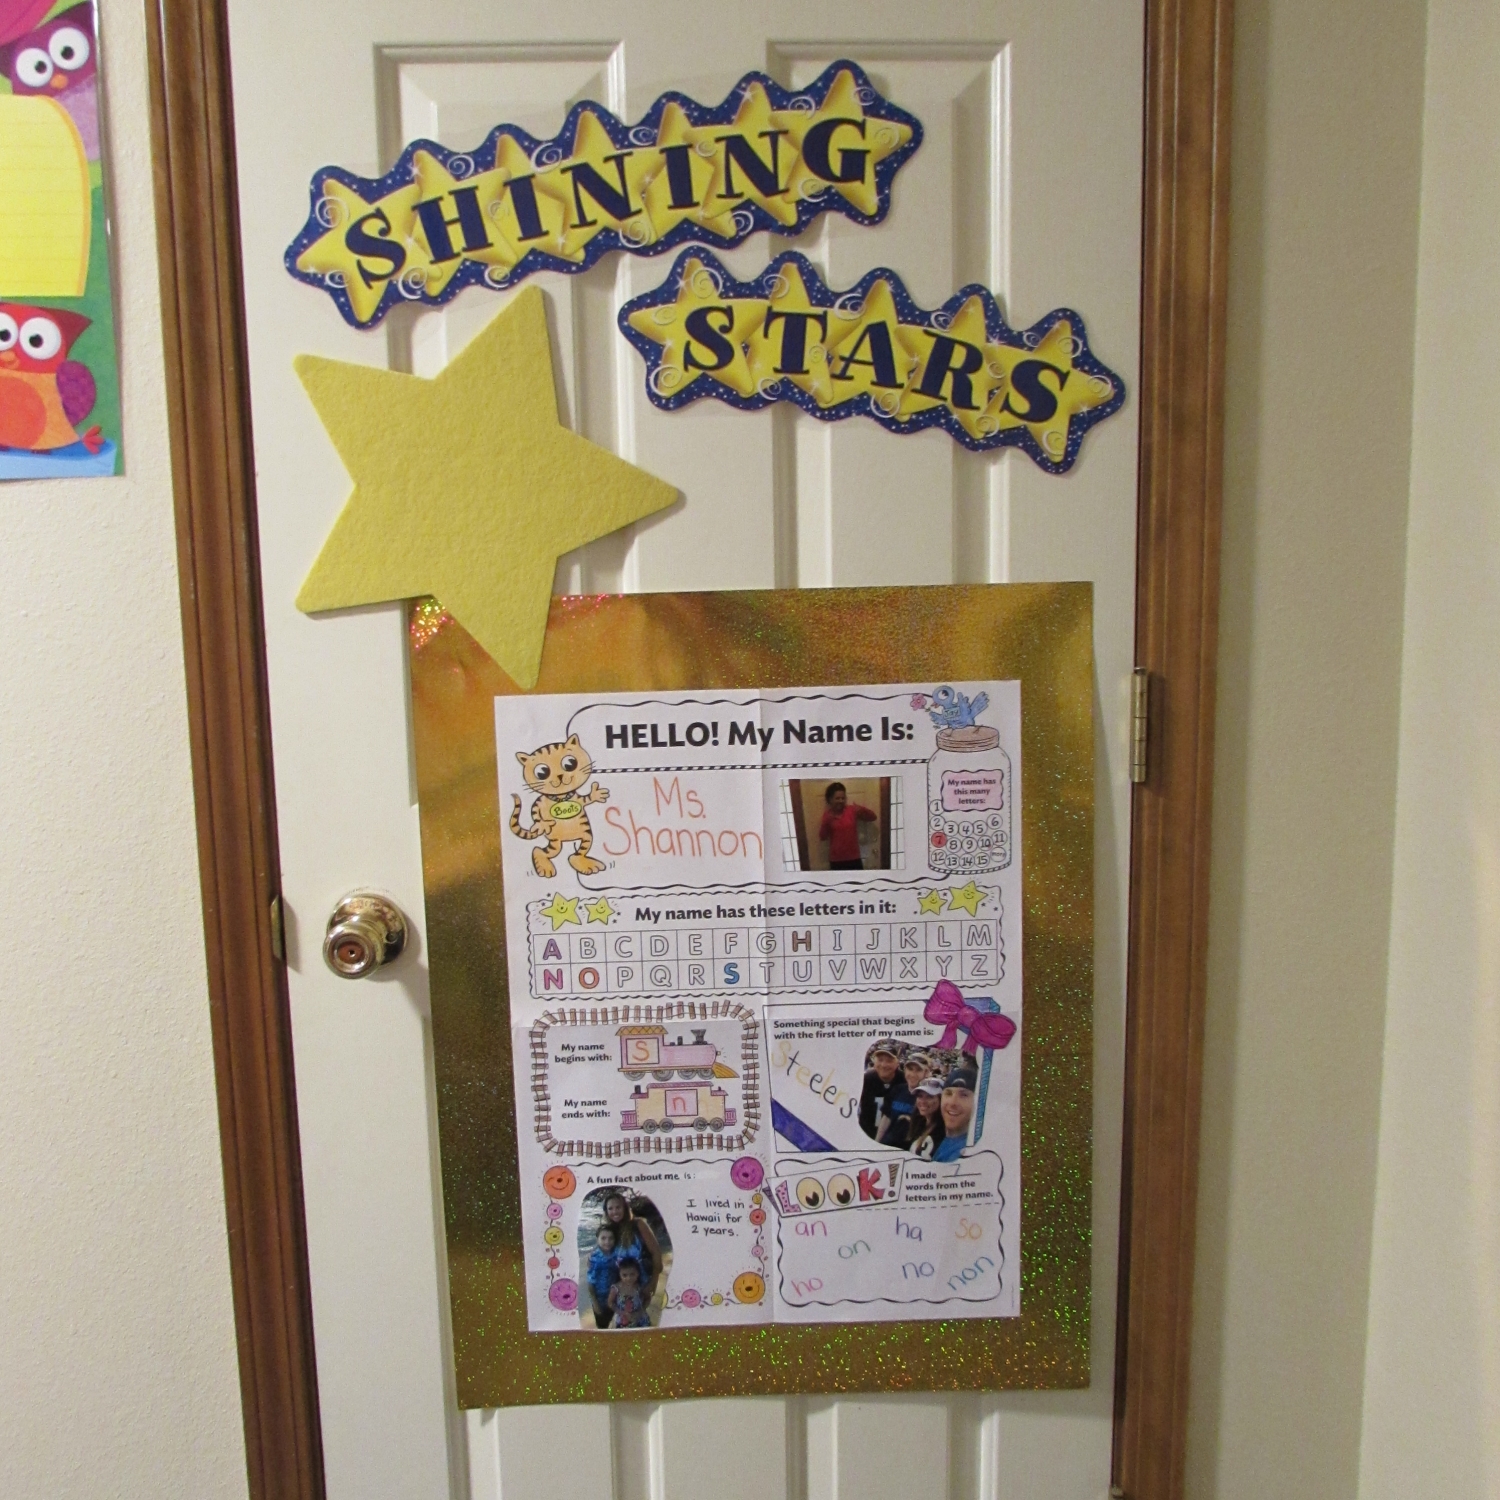 SHINING
STARS
HELLO! My Name Is:
Ms.
Shannon
Boots
My name has
this many
letters:
1
2 3 4 5 6
7 8 9 10 11
12 13 14 15
My name has these letters in it:
A B C D E F G H I J K L M
N O P Q R S T U V W X Y Z
My name
begins with:
S
My name
ends with:
n
Something special that begins
with the first letter of my name is:
Steelers
A fun fact about me is:
I lived in
Hawaii for
2 years.
LOOK!
I made 7
words from the
letters in my name.
an ha so
on
ho no non